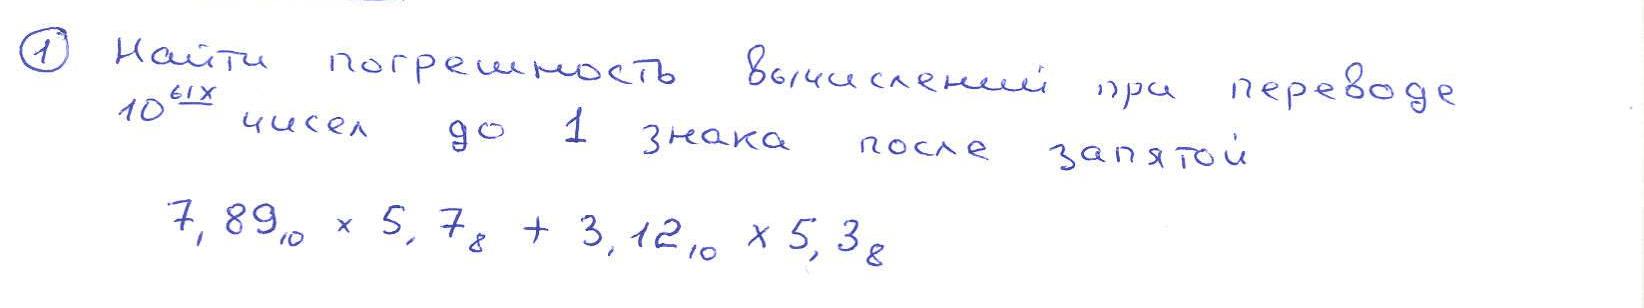 ① Найти погрешность вычислений при переводе
10ых чисел до 1 знака после запятой
7,89₁₀ × 5,7₈ + 3,12₁₀ × 5,3₈